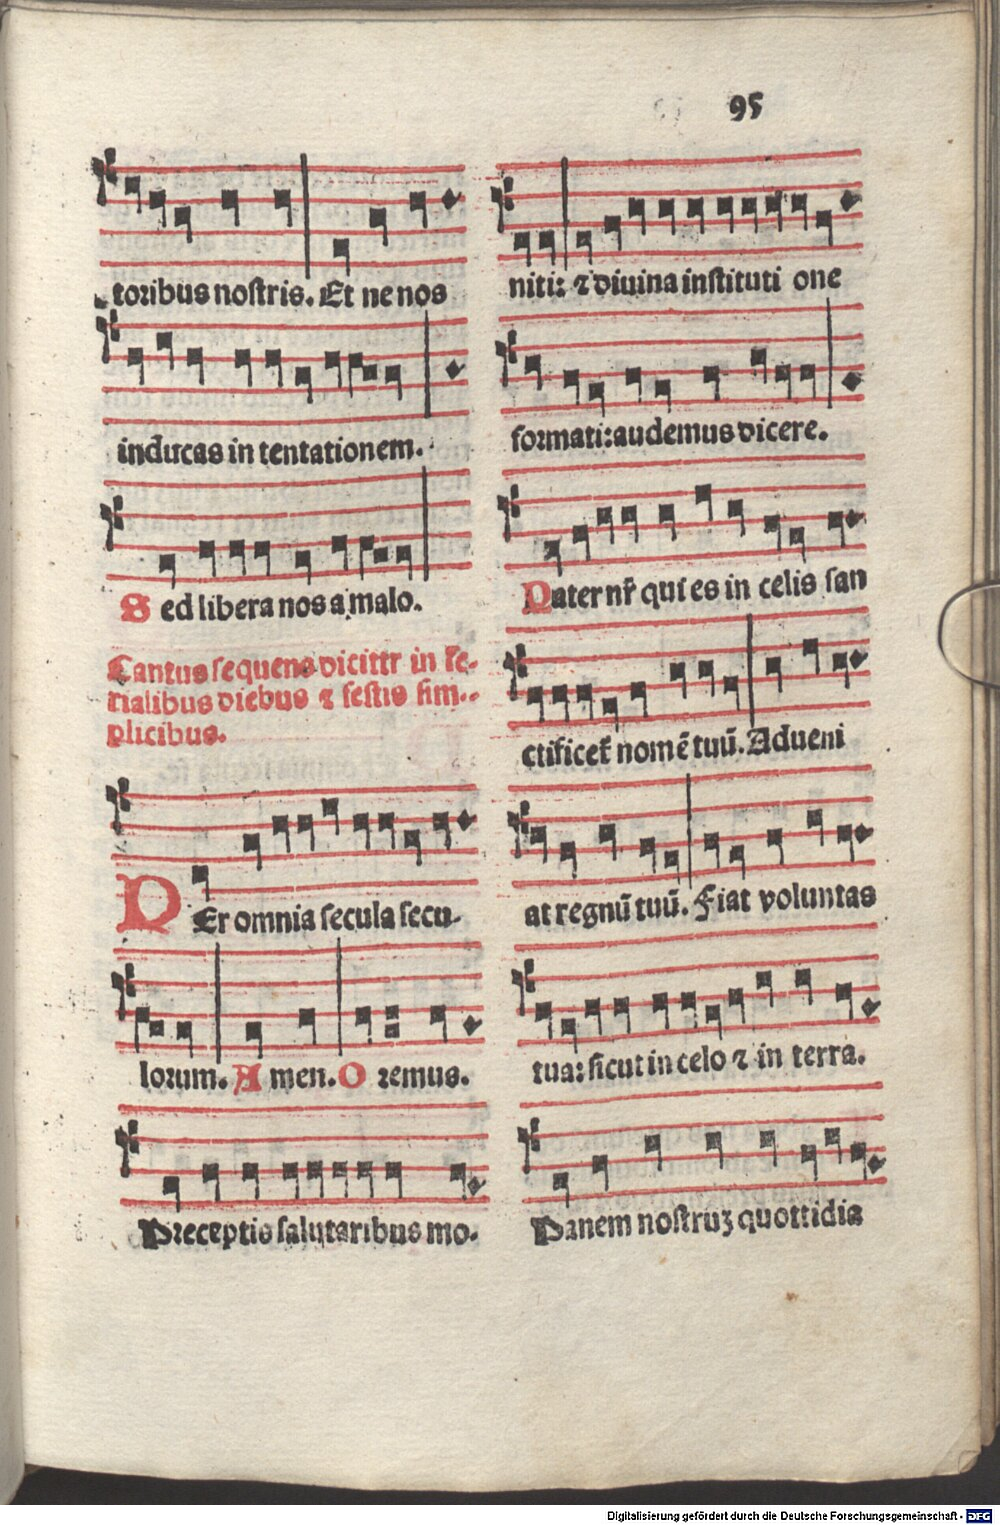 95
toribus nostris. Et ne nos
inducas in tentationem.
Sed libera nos a malo.
Cantus sequens dicitur in fe-
rialibus diebus ⁊ festis sim-
plicibus.
PEr omnia secula secu-
lorum. Amen. Oremus.
Preceptis salutaribus mo-
niti: ⁊ divina instituti one
formati: audemus dicere.
Pater nr̄ qui es in celis san
ctificet̄ nomē tuū. Adueni
at regnū tuū. Fiat voluntas
tua: sicut in celo ⁊ in terra.
Panem nostruꝫ quottidia
Digitalisierung gefördert durch die Deutsche Forschungsgemeinschaft - DFG